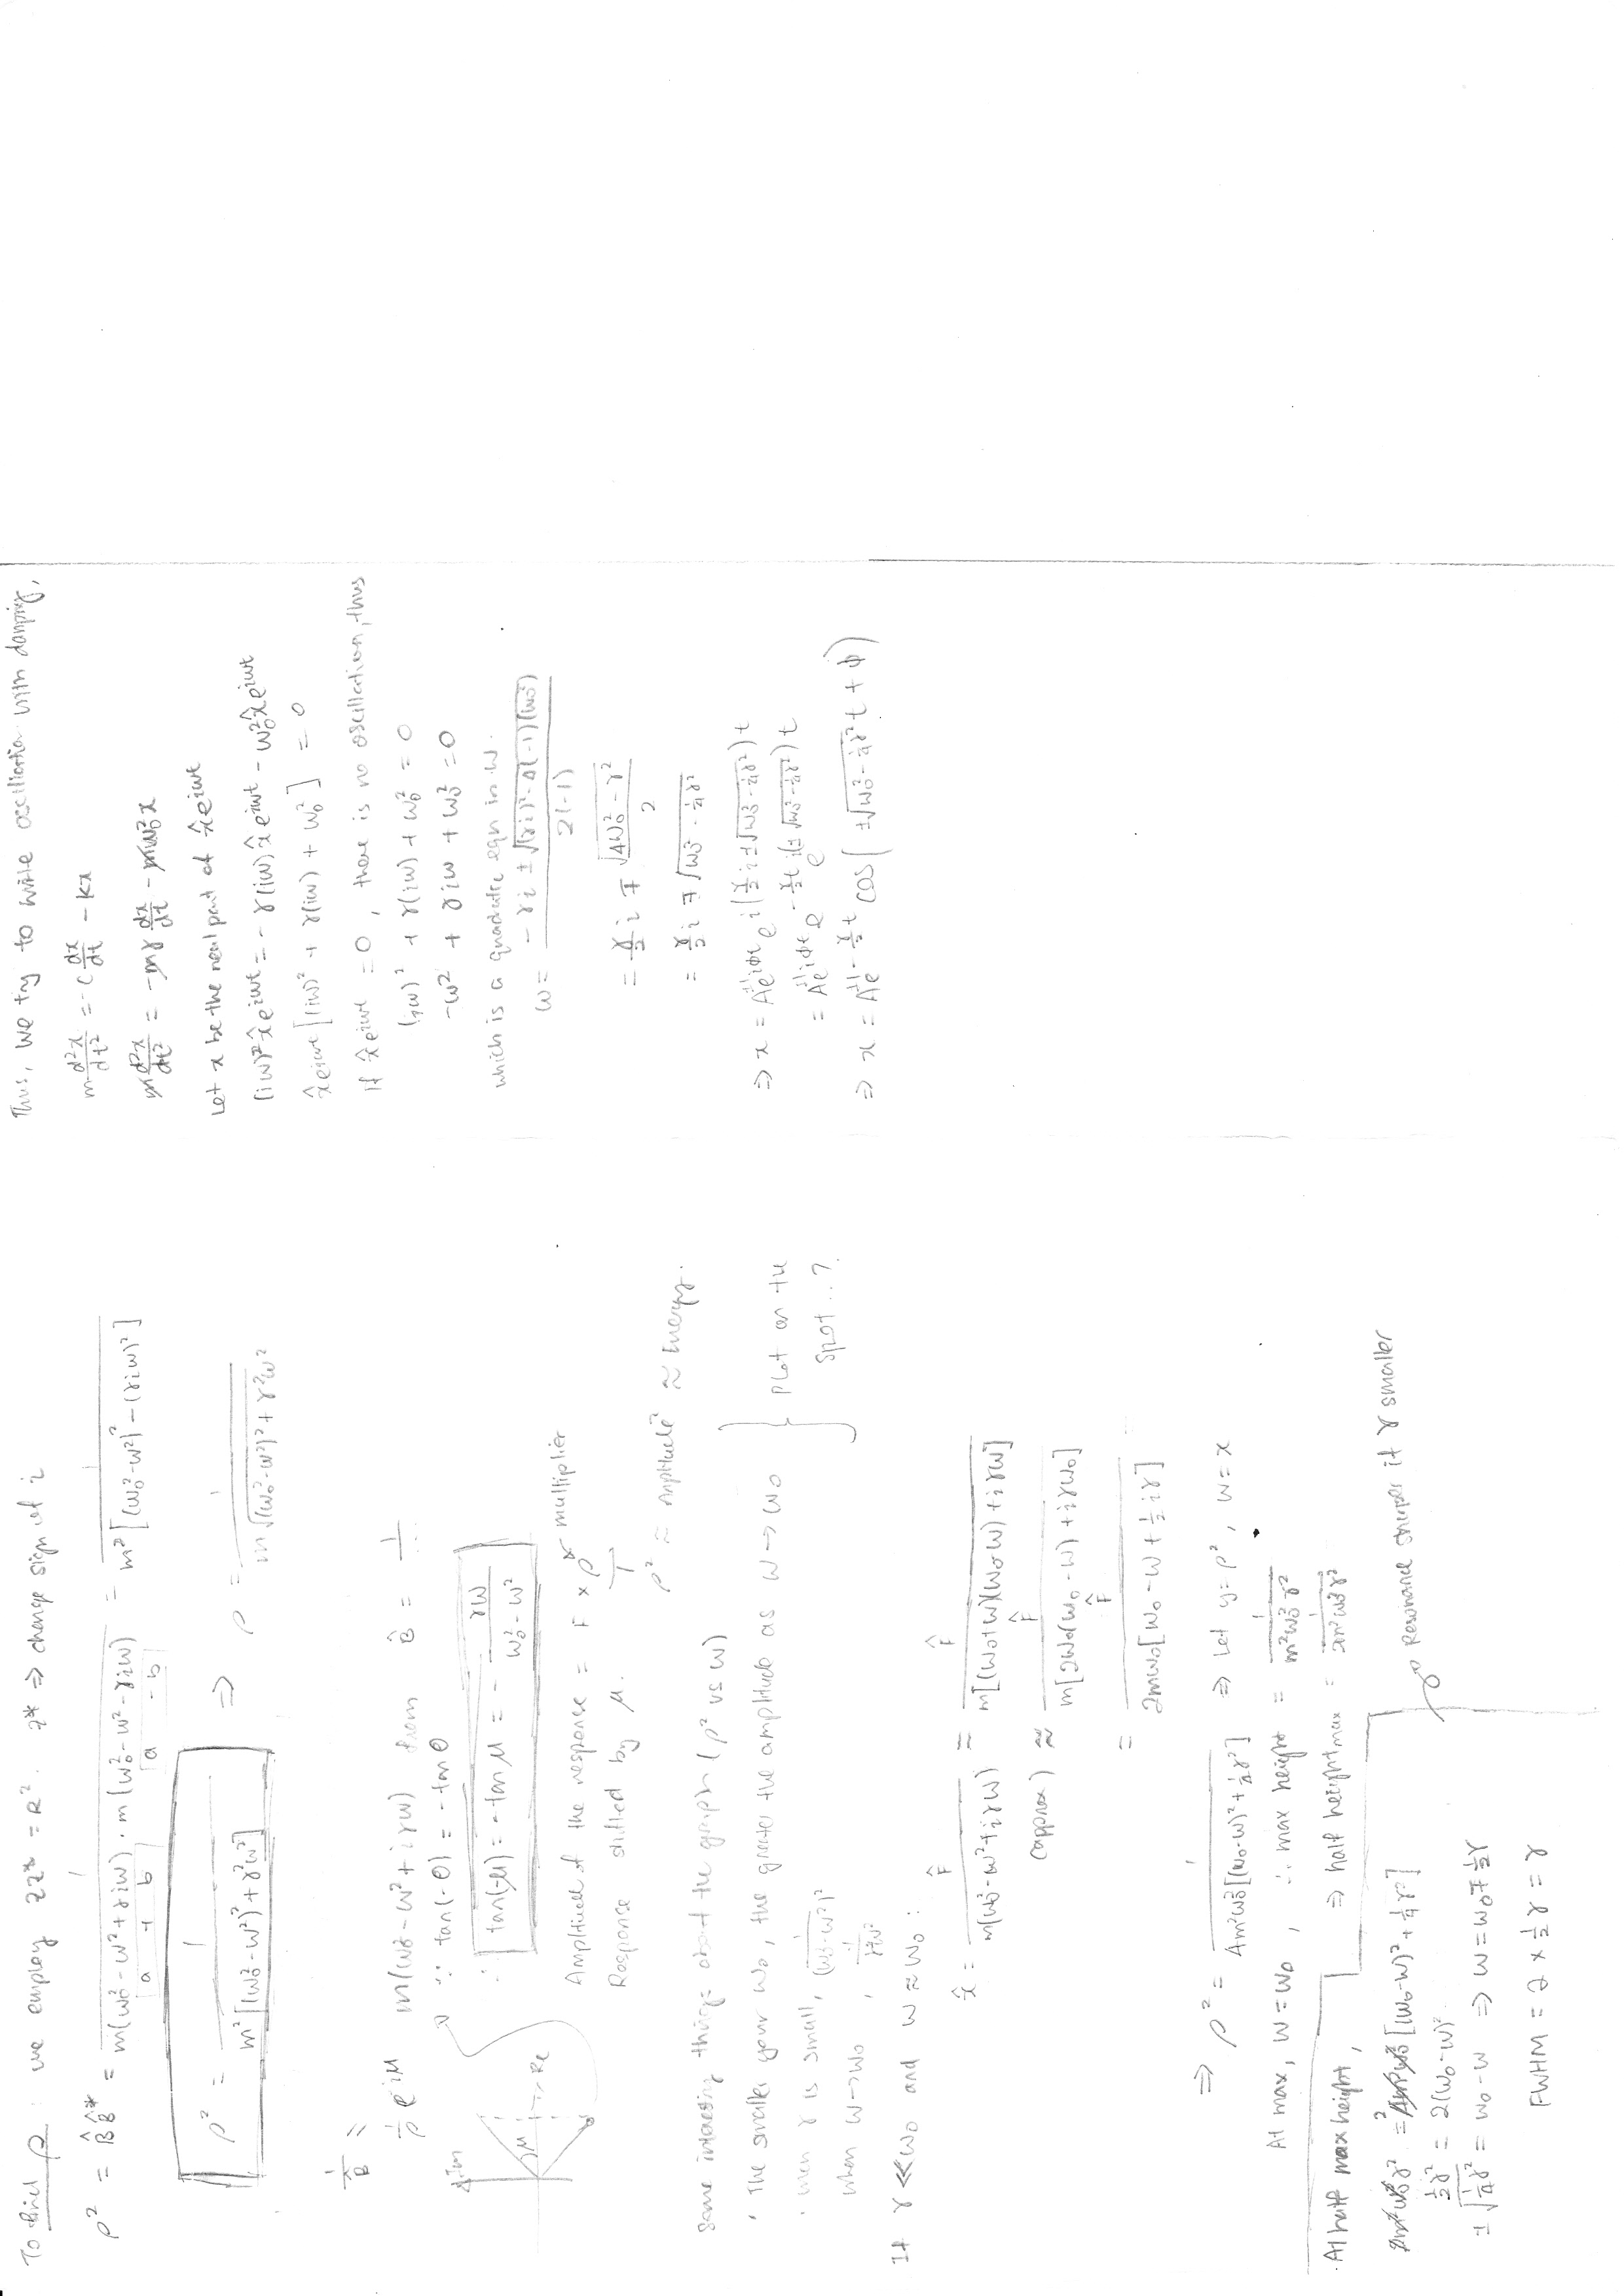 To find ρ : we employ zz* = R². z* ⇒ change sign of i
ρ² = B̂B̂* = 1/(m(ω₀² - ω² + γiω) · m(ω₀² - ω² - γiω)) = 1/(m²[(ω₀² - ω²)² - (γiω)²])
a + b a - b
ρ² = 1/(m²[(ω₀² - ω²)² + γ²ω²]) ⇒ ρ = 1/(m√((ω₀² - ω²)² + γ²ω²))
1/B̂ = 1/ρ e^(iμ) m(ω₀² - ω² + iγω) from B̂ = 1/
Im
μ
Re
∵ tan(-θ) = -tanθ
∴ tan(-μ) = -tanμ = - γω/(ω₀² - ω²)
Amplitude of the response = F × ρ multiplier
Response shifted by μ.
ρ² ≈ amplitude² ≈ energy.
Some interesting things about the graph (ρ² vs ω)
· The smaller your ω₀, the greater the amplitude as ω → ω₀
· when γ is small, 1/(ω₀² - ω²)²
when ω → ω₀ , 1/γ²ω²
} Plot on the
spot..?
If γ ≪ ω₀ and ω ≈ ω₀ :
x̂ = F̂/(m(ω₀² - ω² + iγω)) ≈ F̂/(m[(ω₀+ω)(ω₀-ω) + iγω])
(approx) ≈ F̂/(m[2ω₀(ω₀ - ω) + iγω₀])
= F̂/(2mω₀[ω₀ - ω + ½iγ])
⇒ ρ² = 1/(4m²ω₀²[(ω₀-ω)² + ¼γ²]) ⇒ Let y = ρ², ω = x
At max, ω = ω₀ , ∴ max height = 1/(m²ω₀²γ²)
⇒ half height max = 1/(2m²ω₀²γ²)
· At half max height,
2m²ω₀²γ² = 4m²ω₀²[(ω₀-ω)² + ¼γ²]
½γ² = 2(ω₀-ω)²
±√(¼γ²) = ω₀ - ω ⇒ ω = ω₀ ∓ ½γ
FWHM = 2 × ½γ = γ
Resonance sharper if γ smaller
Thus, we try to write oscillation with damping,
m d²x/dt² = -c dx/dt - kx
m d²x/dt² = -mγ dx/dt - mω₀²x
Let x be the real part of x̂e^(iωt)
(iω)²x̂e^(iωt) = -γ(iω)x̂e^(iωt) - ω₀²x̂e^(iωt)
x̂e^(iωt)[(iω)² + γ(iω) + ω₀²] = 0
If x̂e^(iωt) = 0, there is no oscillation, thus
(iω)² + γ(iω) + ω₀² = 0
-ω² + γiω + ω₀² = 0
which is a quadratic eqn in ω.
ω = (-γi ± √((γi)² - 4(-1)(ω₀²)))/(2(-1))
= γ/2 i ∓ √(4ω₀² - γ²)/2
= γ/2 i ∓ √(ω₀² - ¼γ²)
⇒ x = A'e^(iφ) e^(i(γ/2 i ± √(ω₀² - ¼γ²))t)
= A'e^(iφ) e^(-γ/2 t) e^(i(±√(ω₀² - ¼γ²))t)
⇒ x = A'e^(-γ/2 t) cos(±√(ω₀² - ¼γ²) t + φ)